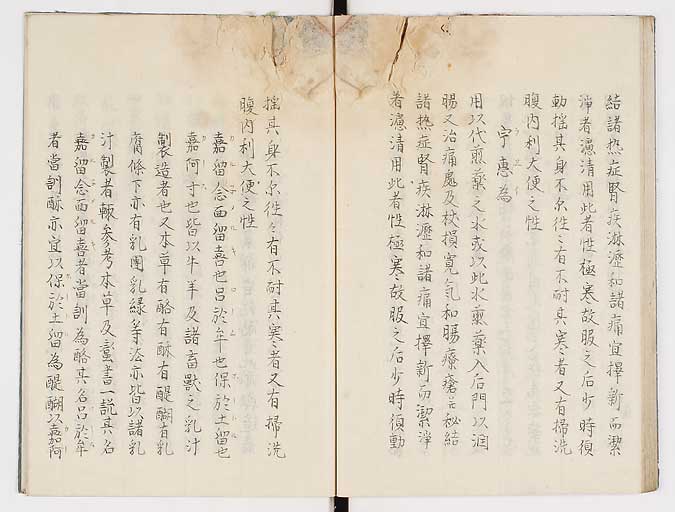 結諸热症腎疾淋瀝和諸痛宜擇新而潔
淨者濾清用此者性極寒故服之后少時須
動揺其身不尓徃々有不耐其寒者又有掃洗
腹内利大便之性
宇恵為
用以代煎薬之水或以此水熏薬入后門以潤
腸又治痛處及杖損寛気和腸療瘡苦秘結
諸热症腎疾淋瀝和諸痛宜擇新而潔淨
者濾清用此者性極寒故服之后少時須動
揺其身不尓徃々有不耐其寒者又有掃洗
腹内利大便之性
嘉留念面留喜也呂於牟也保於土留也
嘉阿寸也皆以牛羊及諸畜獣之乳汁
製造者也又本草有酪有酥有醍醐有乳
腐條下亦有乳團乳線等法亦皆以諸乳
汁製者輙参考本草及蛮書一説其名
嘉留念面留喜者當訓為酪其名呂於牟
者當訓酥亦宜以保於土留為醍醐以嘉阿